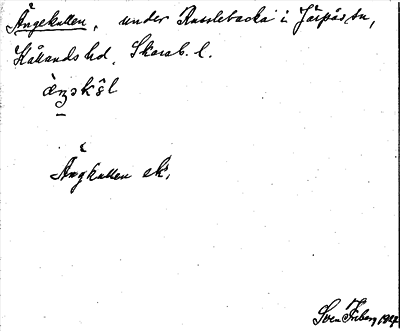 Ängekullen, under Russlebacka i Järpås sn,
Kållands hd, Skarab. l.
Ängkullen ek.
Sven Friberg 1927